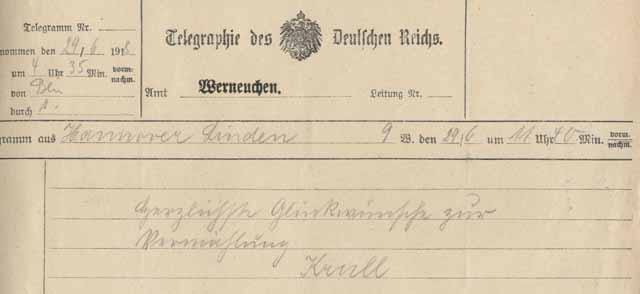 Telegramm Nr.
Telegraphie des Deutschen Reichs.
nommen den 29/6 1918
um 4 Uhr 35 Min. vorm. nachm.
von Bln
durch
Amt Werneuchen. Leitung Nr.
gramm aus Hannover Linden 9 W. den 29/6 um 11 Uhr 40 Min. vorm. nachm.
Herzlichste Glückwünsche zur
Vermählung
Krull